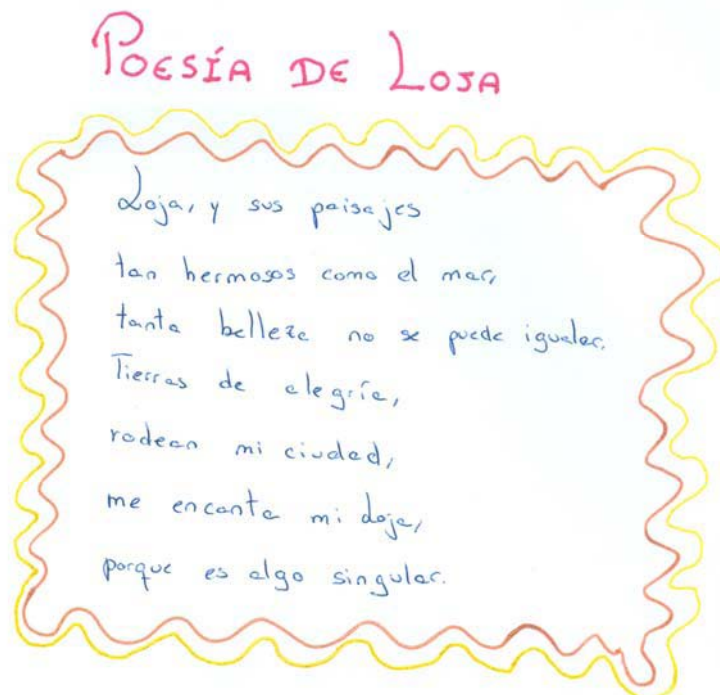 POESÍA DE LOJA
Loja, y sus paisajes
tan hermosos como el mar,
tanta belleza no se puede igualar.
Tierras de alegría,
rodean mi ciudad,
me encanta mi Loja,
porque es algo singular.